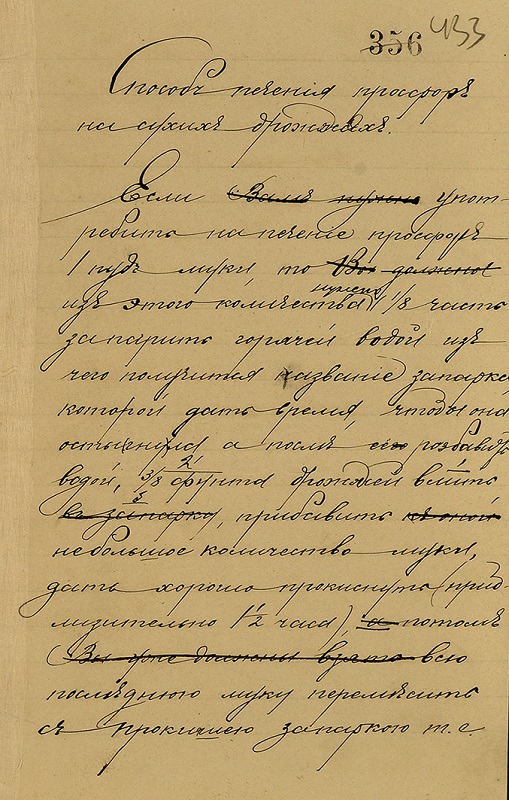 356 433
Способъ печенія просфоръ
на сухихъ дрожжахъ.
Если Вамъ нужно употре-
ребить на печеніе просфоръ
1 пудъ муки, то Вы должны
нужно
изъ этого количества 1/8 часть
запарить горячей водой изъ
чего получится названіе запарка,
которой дать время, чтобы она
остыгнула а послѣ его розбавить
водой, 3/8 фунта дрожжей влить
въ запарку, прибавить къ оной
небольшое количество муки,
дать хорошо прокиснуть (приб-
лизительно 1 1/2 часа), а потомъ
Вы уже должны взять всю
послѣднюю муку перемѣсить
съ прокишею запаркою т.е.